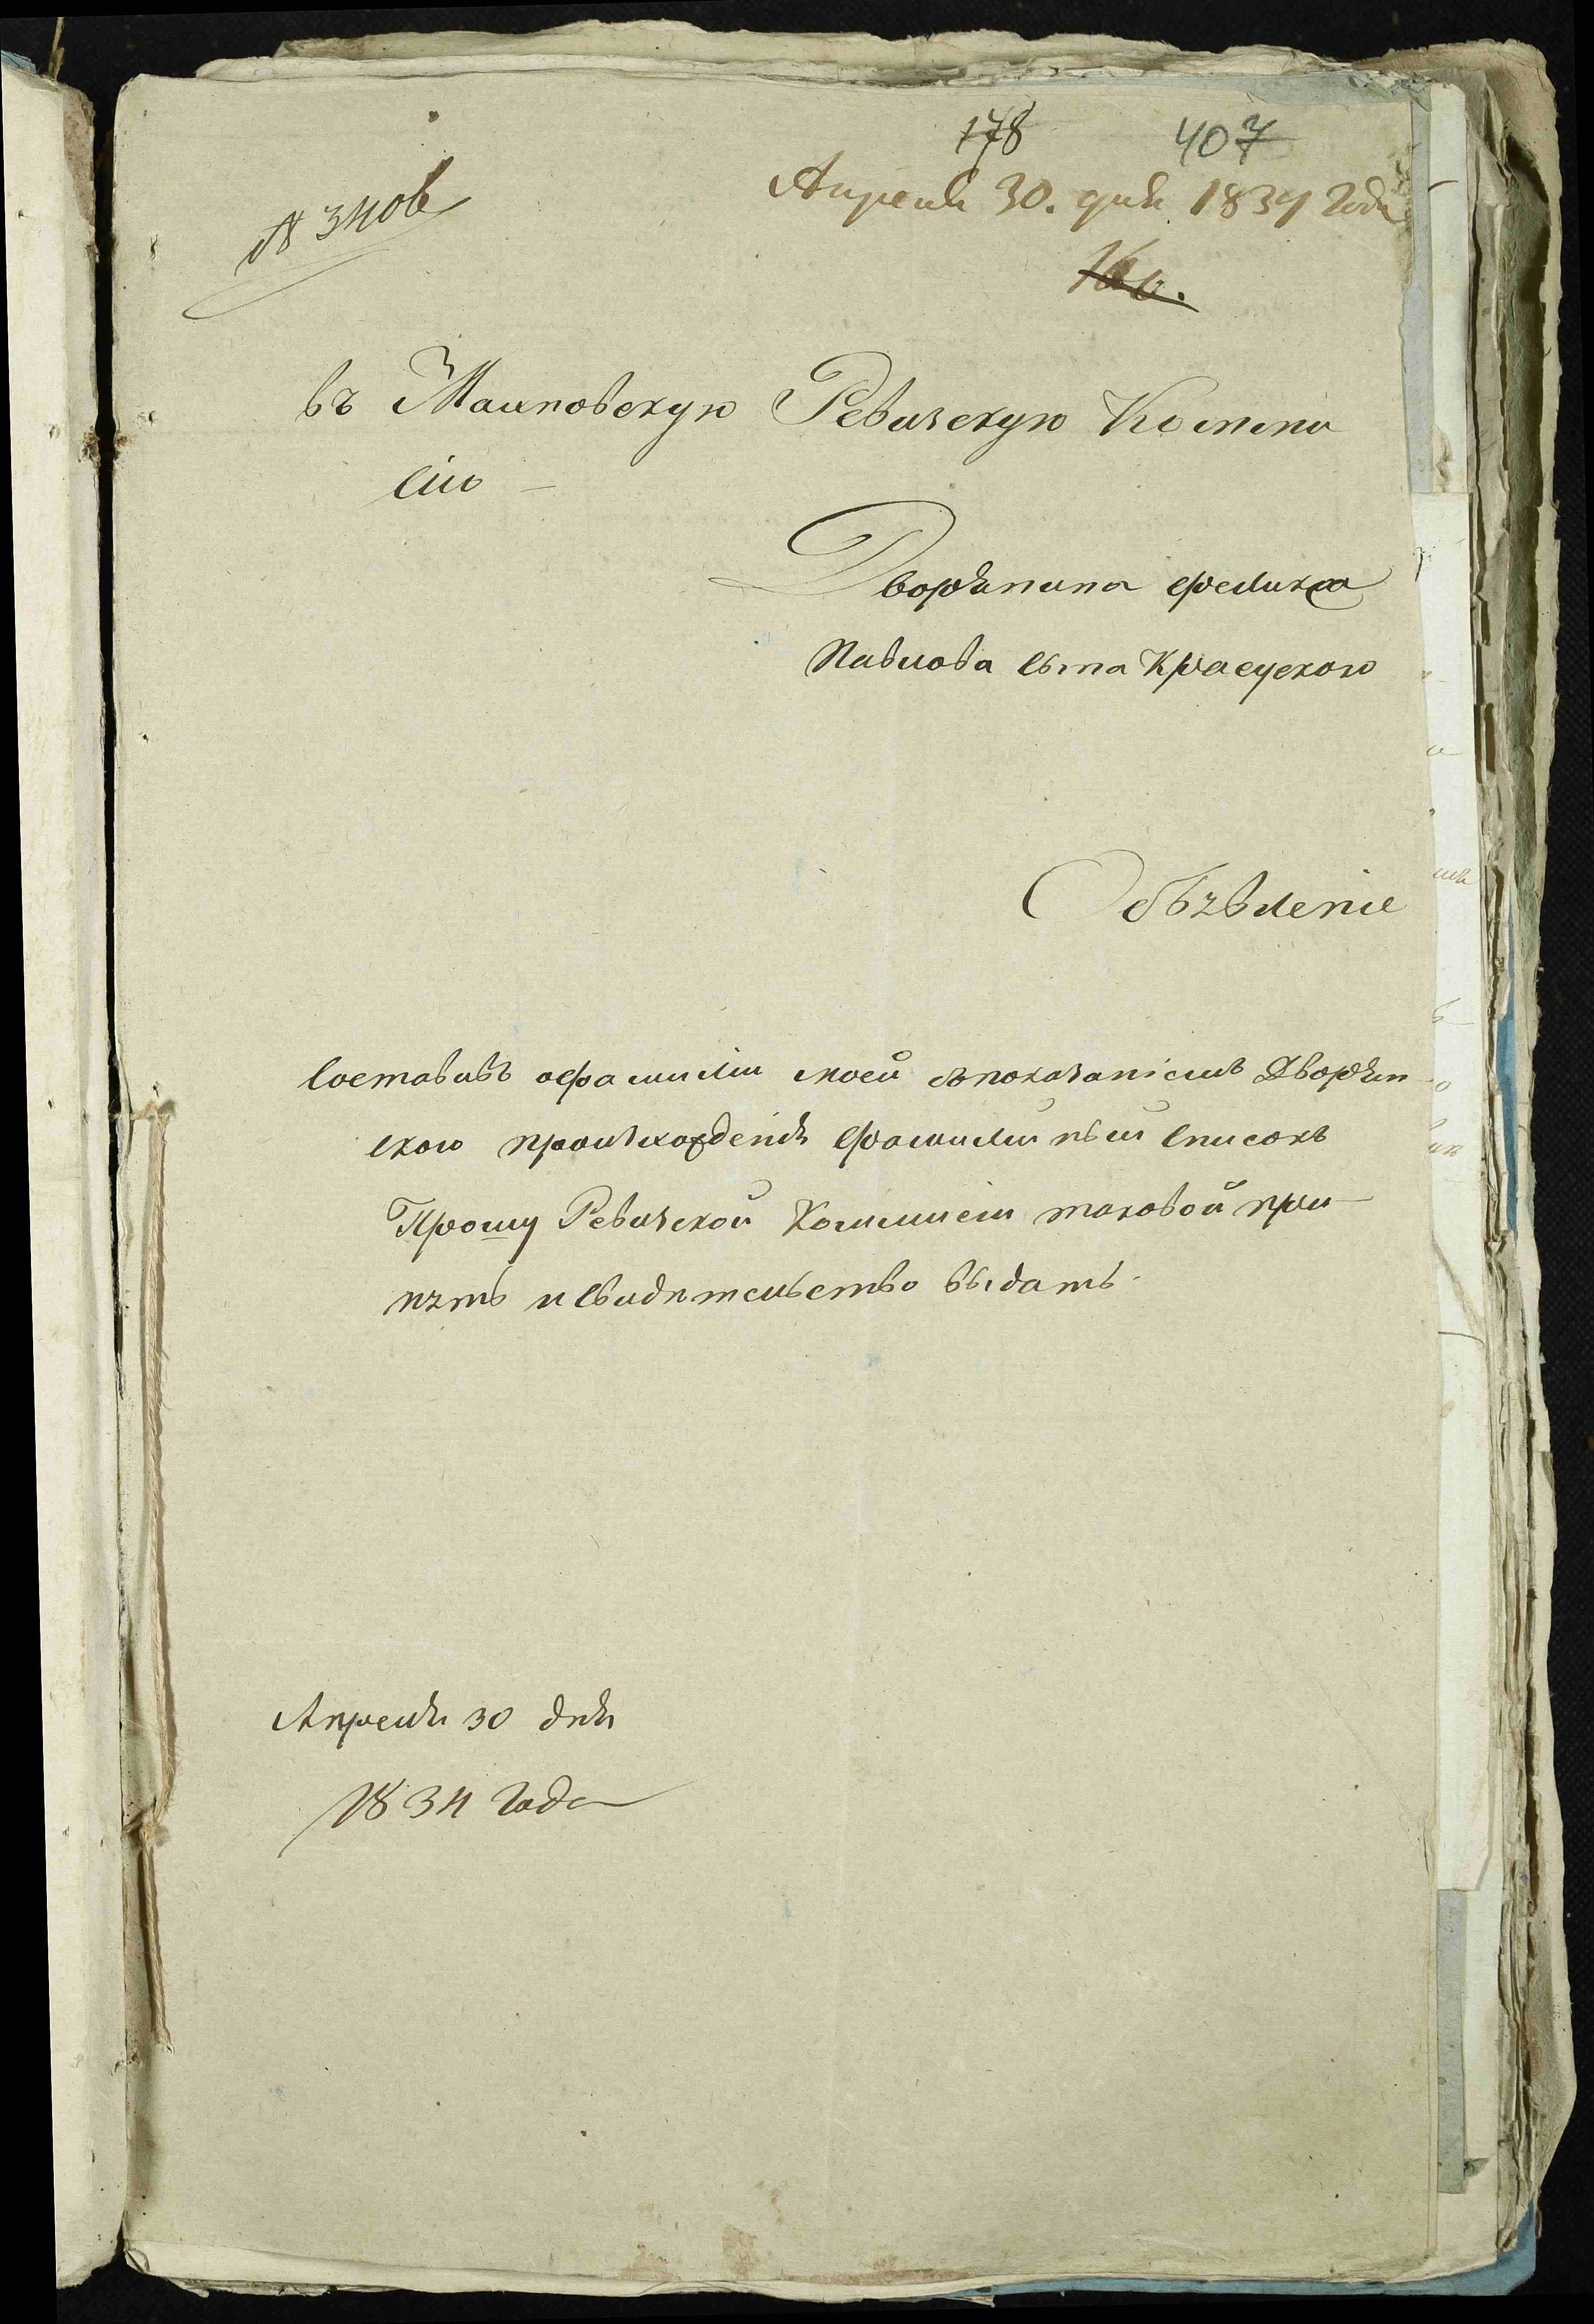 178 407
Апреля 30. дня 1834 года
№ 3406
въ Ревизскую Комми
сію
Дворянина Феликса
Павлова сына Красускою
Объявленіе
Составивъ офамиліи моей съпоказаніемъ Дворян
скою происхожденія Фамилійный списокъ
Прошу Ревизской Коммисіи таковой при
нять и свидѣтельство выдать.
Апреля 30 дня
1834 года